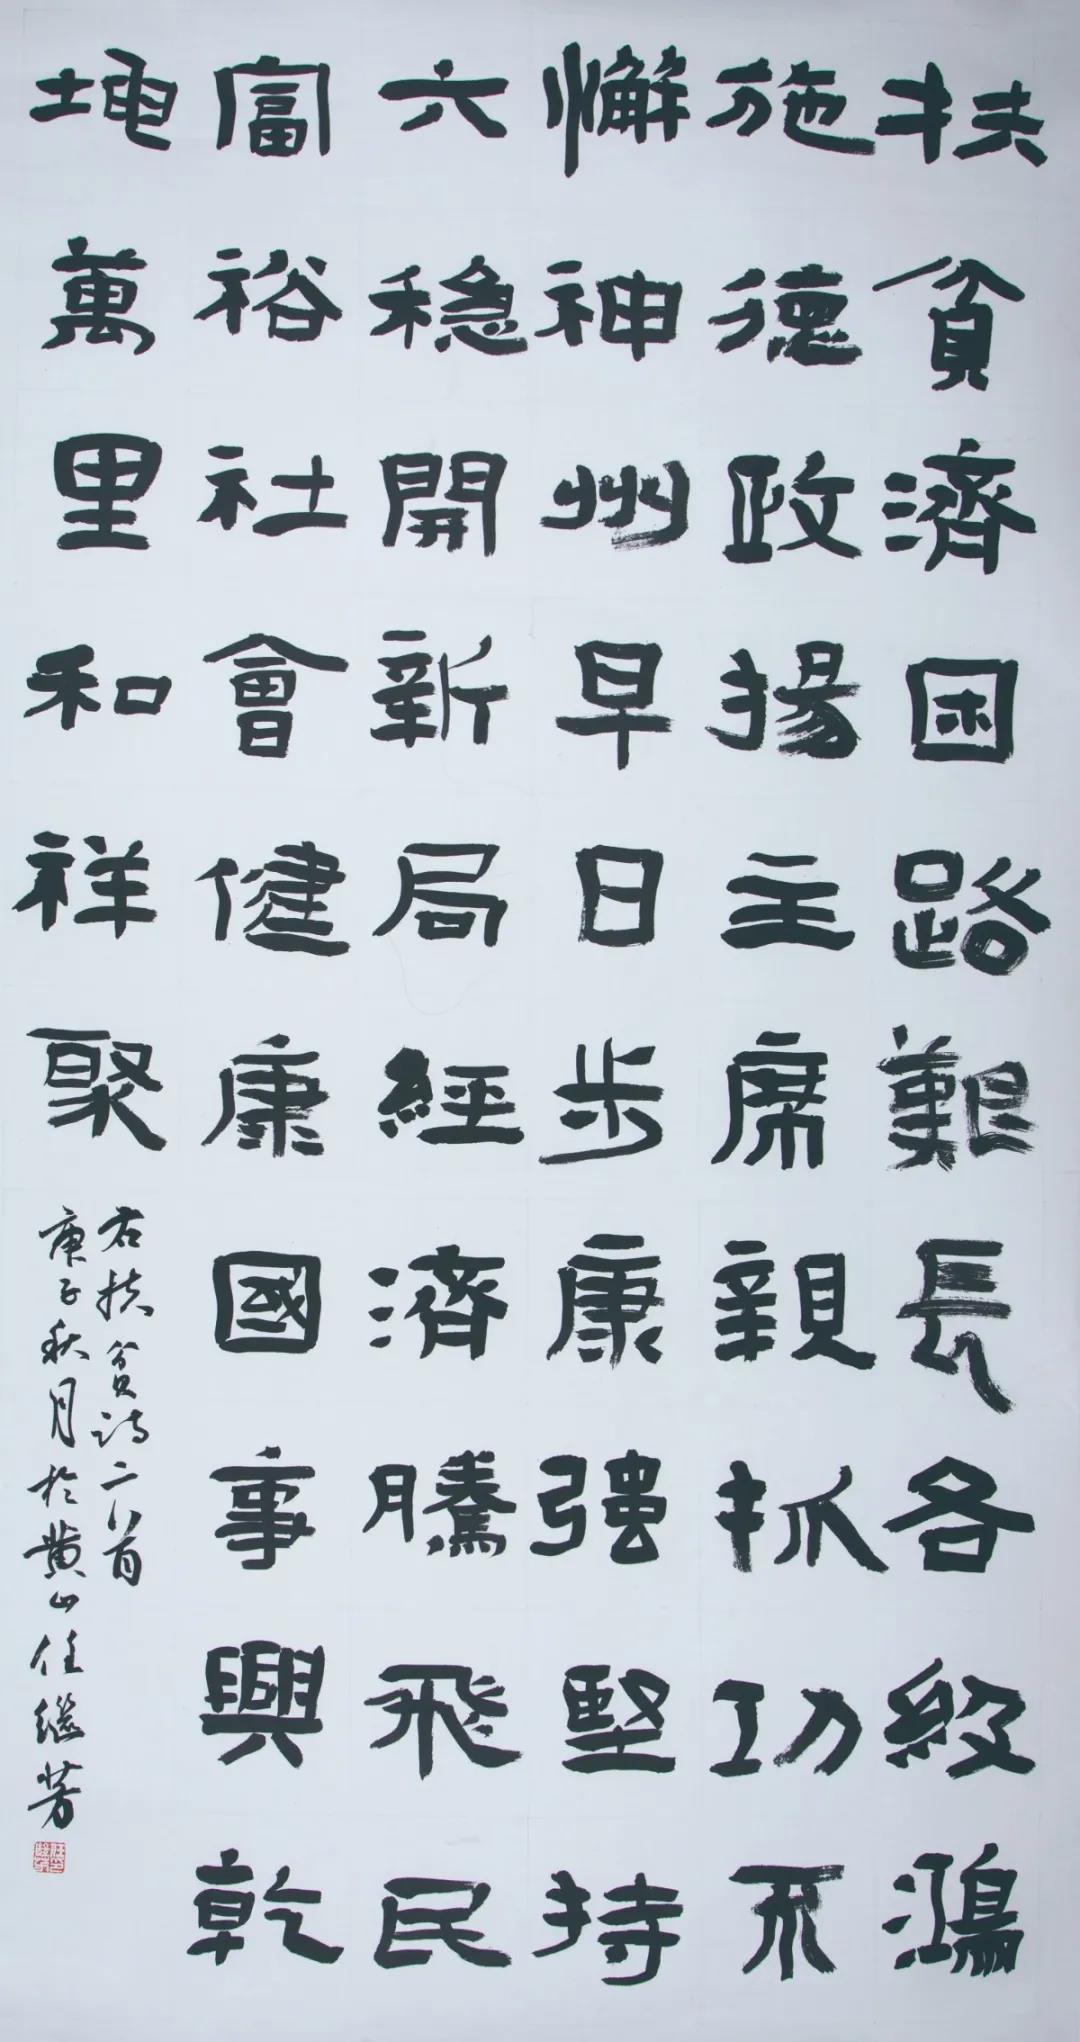 扶貧濟困路艱長各級鴻
施德政揚主席親抓功不
懈神州早日步康強堅持
六穩開新局經濟騰飛民
富裕社會健康國事興乾
坤萬里和祥聚
右扶貧詩二首
庚子秋月於黃山任繼芳